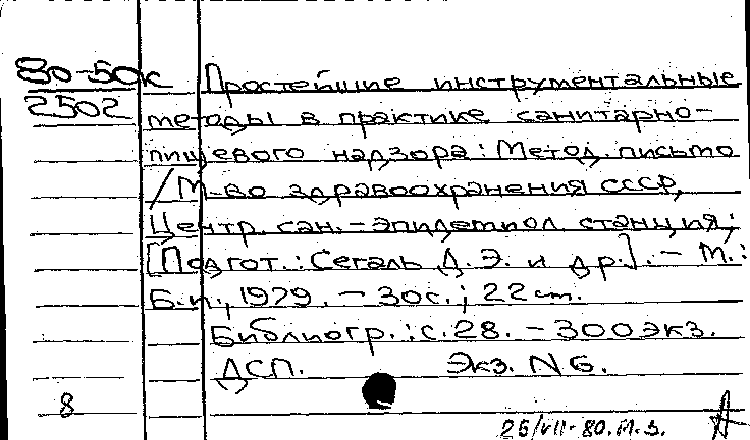 80-50к Простейшие инструментальные
2502 методы в практике санитарно-
пищевого надзора: Метод. письмо
/М-во здравоохранения СССР,
Центр. сан.-эпидемиол. станция;
[Подгот.: Сегаль Д.Э. и др.]. - М.:
Б.и., 1979. - 30с.; 22 cm.
Библиогр.: с.28. - 300 экз.
ДСП. Экз. N 6.
8
25/VII-80. М.З.